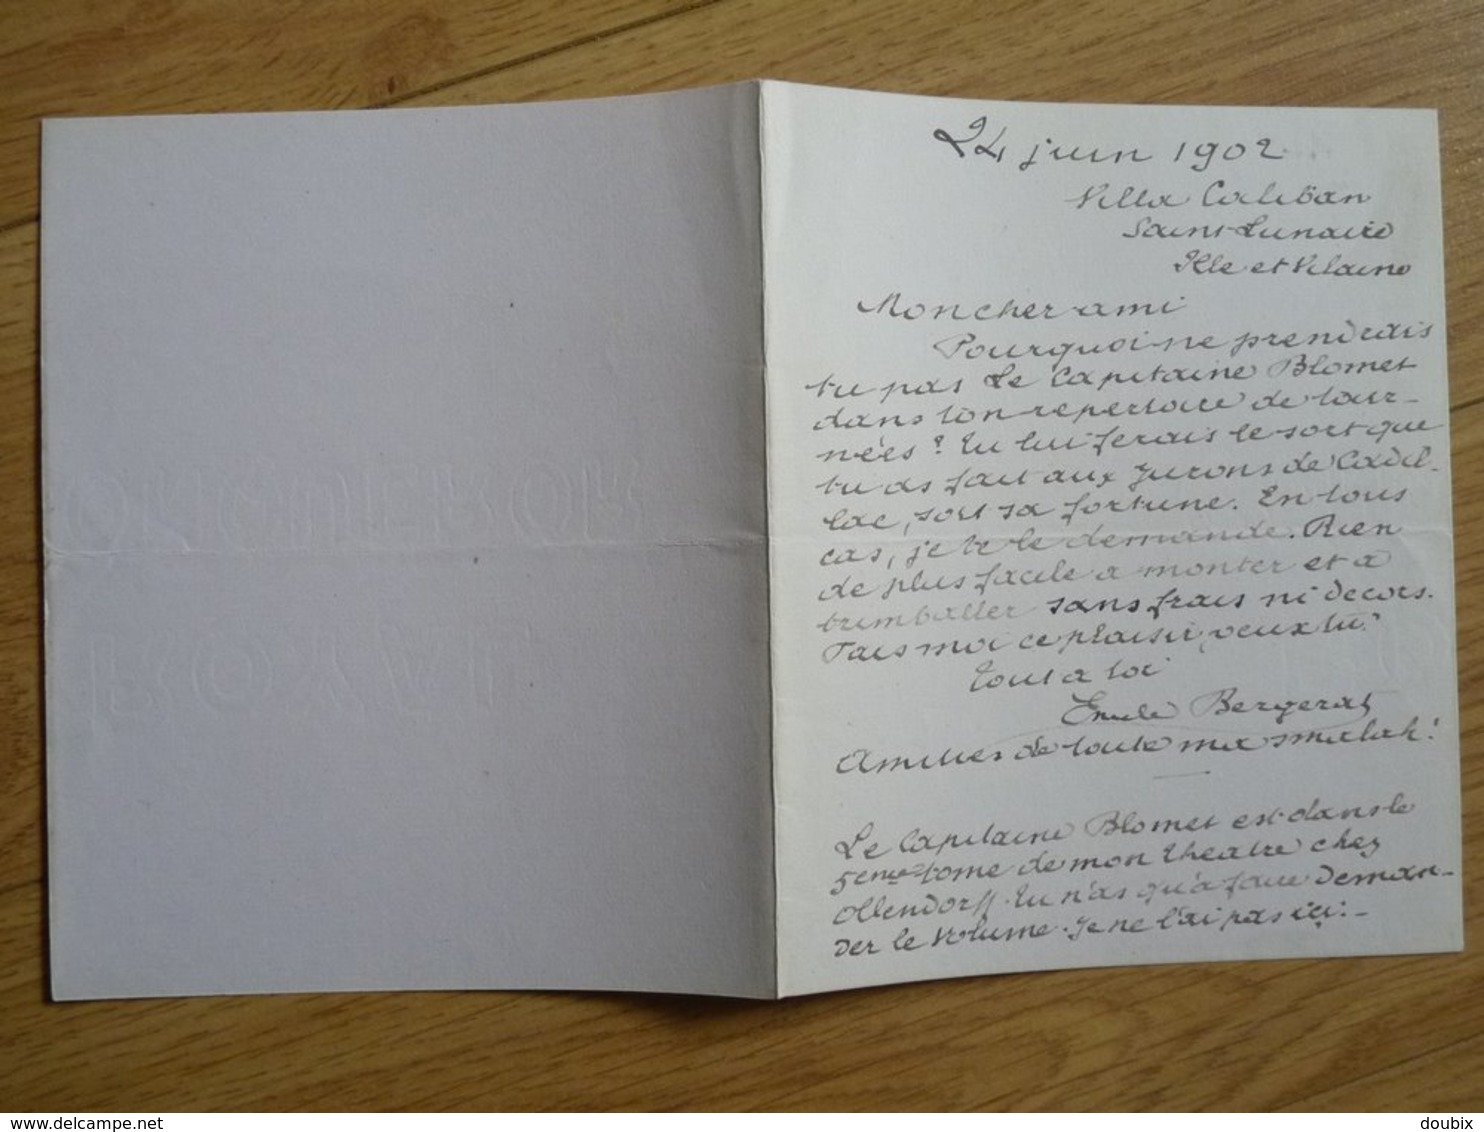 24 juin 1902
Villa Caliban
Saint-Lunaire
Ille et Vilaine
Mon cher ami
Pourquoi ne prendrais
tu pas Le Capitaine Blomet
dans ton repertoire de tour-
nées ? Tu lui ferais le sort que
tu as fait aux Jurons de Cadil-
lac, soit sa fortune. En tous
cas, je te le demande. Rien
de plus facile a monter et a
trimballer sans frais ni decors.
Fais moi ce plaisir, veux tu ?
tout a toi
Emile Bergerat
Amities de toute ma smalah !
Le Capitaine Blomet est dans le
5eme tome de mon theatre chez
Ollendorff. Tu n'as qu'a faire deman-
der le volume. Je ne l'ai pas ici. –
ORIGINAL
ROYAL
delcampe.net
doubix